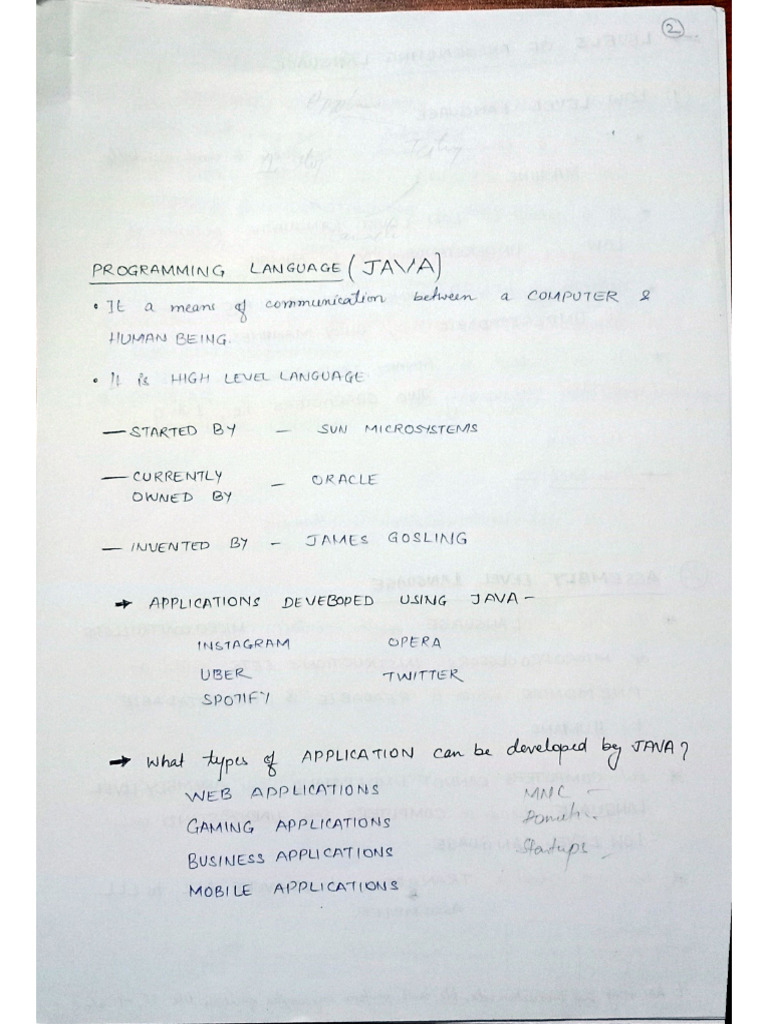 2
PROGRAMMING LANGUAGE (JAVA)
• It a means of communication between a COMPUTER &
HUMAN BEING.
• It is HIGH LEVEL LANGUAGE
— STARTED BY — SUN MICROSYSTEMS
— CURRENTLY OWNED BY — ORACLE
— INVENTED BY — JAMES GOSLING
→ APPLICATIONS DEVEBOPED USING JAVA —
INSTAGRAM OPERA
UBER TWITTER
SPOTIFY
→ What types of APPLICATION can be developed by JAVA?
WEB APPLICATIONS MNC —
GAMING APPLICATIONS
BUSINESS APPLICATIONS Startups —
MOBILE APPLICATIONS